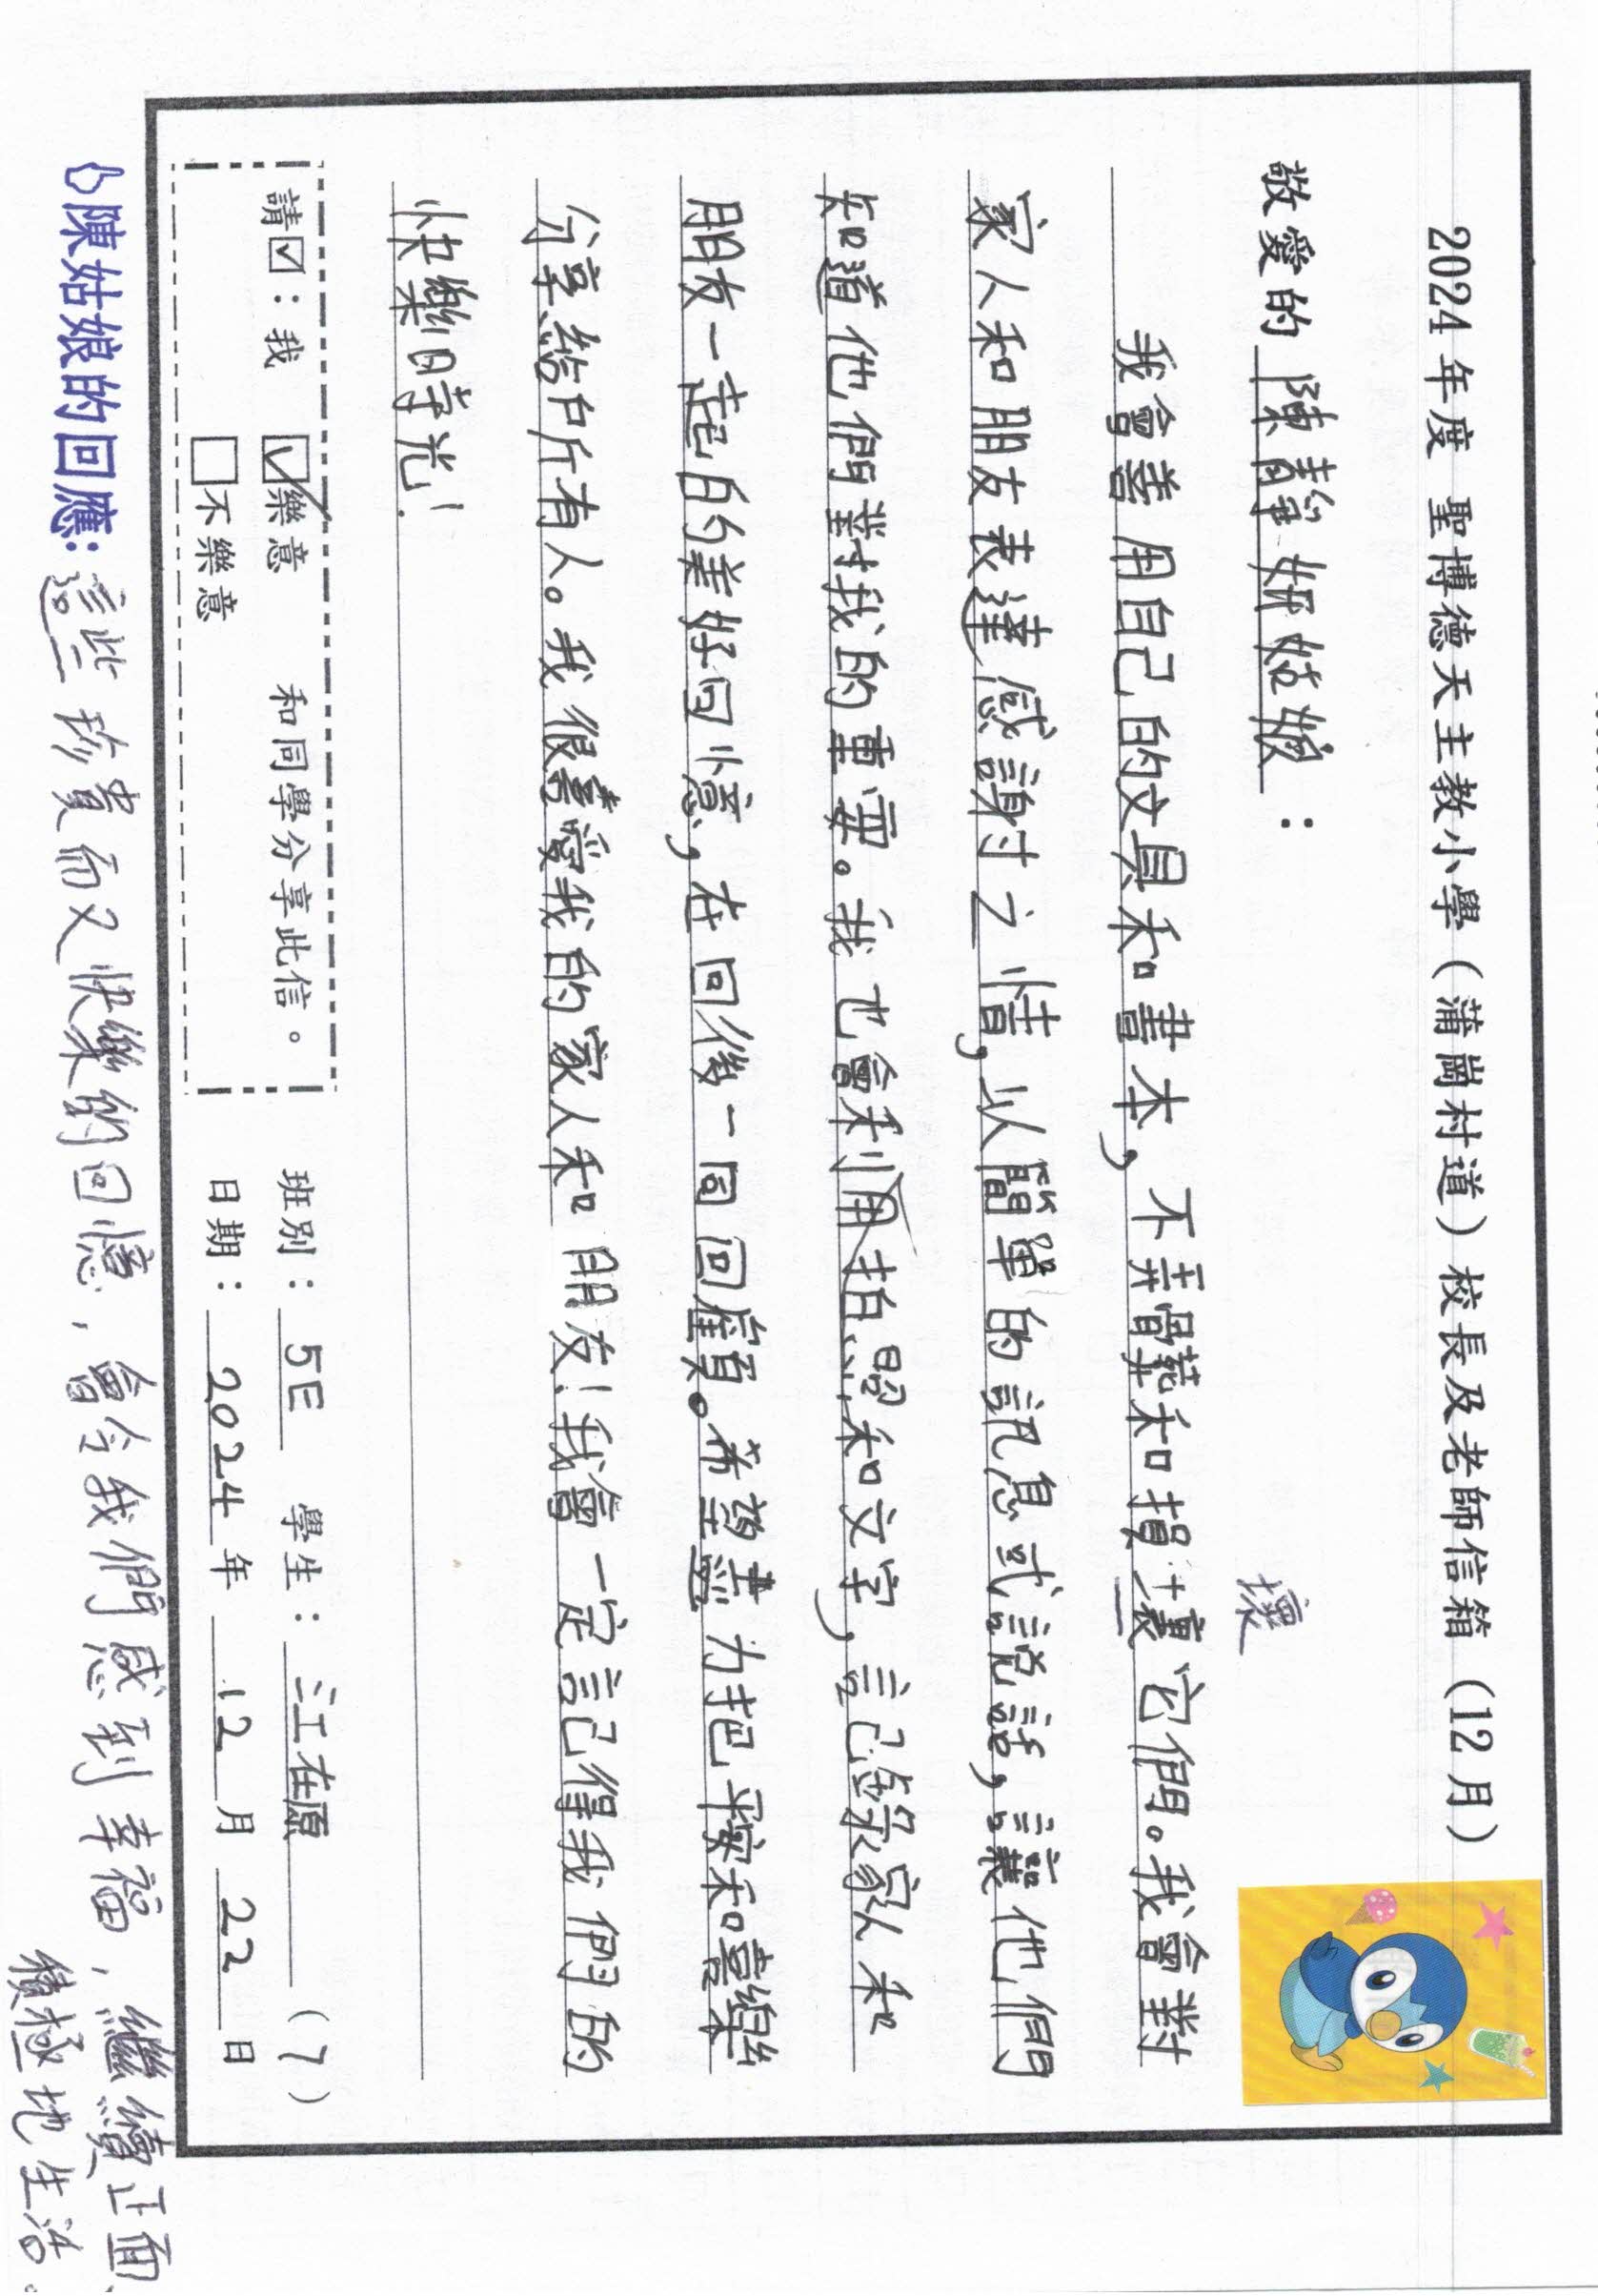 2024 年度 聖博德天主教小學(蒲崗村道)校長及老師信箱(12 月)
敬愛的 陳靜妍姑娘 :
壞
我會善用自己的文具和書本,不弄髒和損壤它們。我會對
家人和朋友表達感謝之情,以簡單的訊息或說話,讓他們
知道他們對我的重要。我也會利用拍照和文字,記錄家人和
朋友一起的美好回憶,在回後一同回顧。希望 力把平安和喜樂
分享給所有人。我很喜愛我的家人和朋友!我會一定記得我們的
快樂時光!
請☑:我 ☑樂意 和同學分享此信。
□不樂意
班別: 5E 學生: 江在原 (7)
日期: 2024 年 12 月 22 日
陳姑娘的回應:這些珍貴而又快樂的回憶,會令我們感到幸福,繼續正面、
積極地生活。